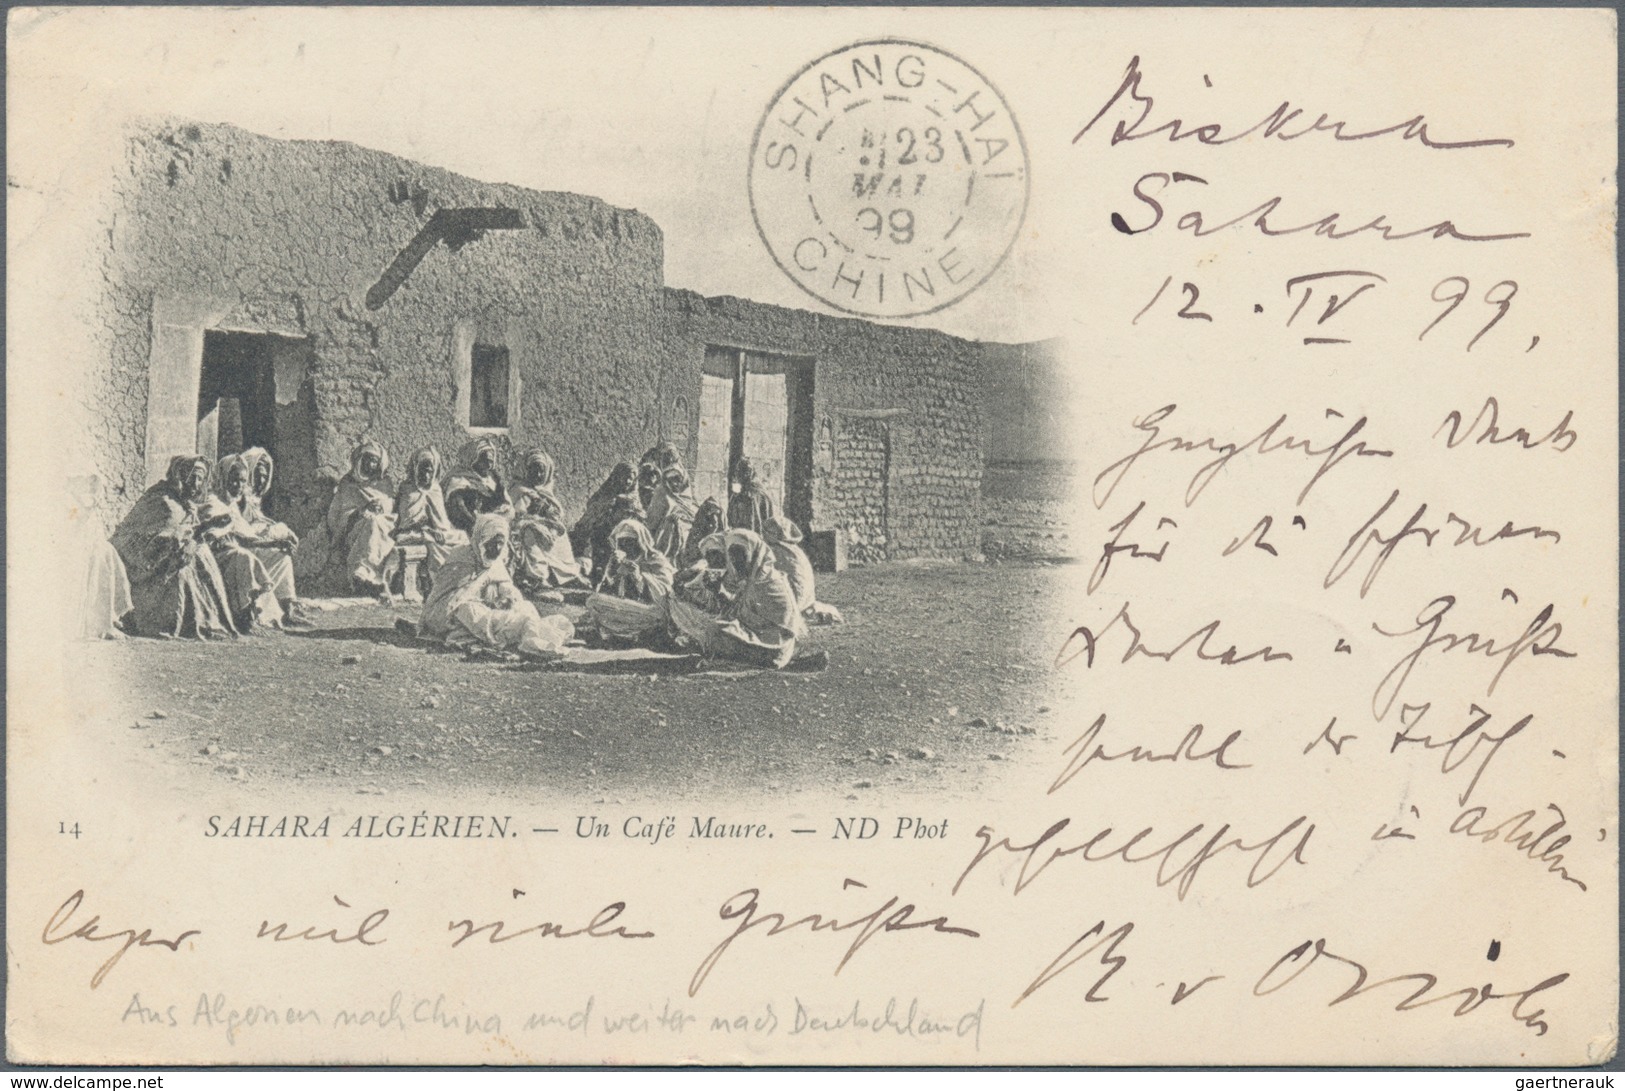 SHANG-HAÏ
23
MAI
99
CHINE
Biskra
Sahara
12. IV 99.
Dank
für die schönen
Karten u Grüße
sendet der
gesellschaft in
lager mit vielen Grüßen
R v
14 SAHARA ALGÉRIEN. — Un Café Maure. — ND Phot
Aus Algerien nach China und weiter nach Deutschland
www.delcampe.net
gaertnerauk